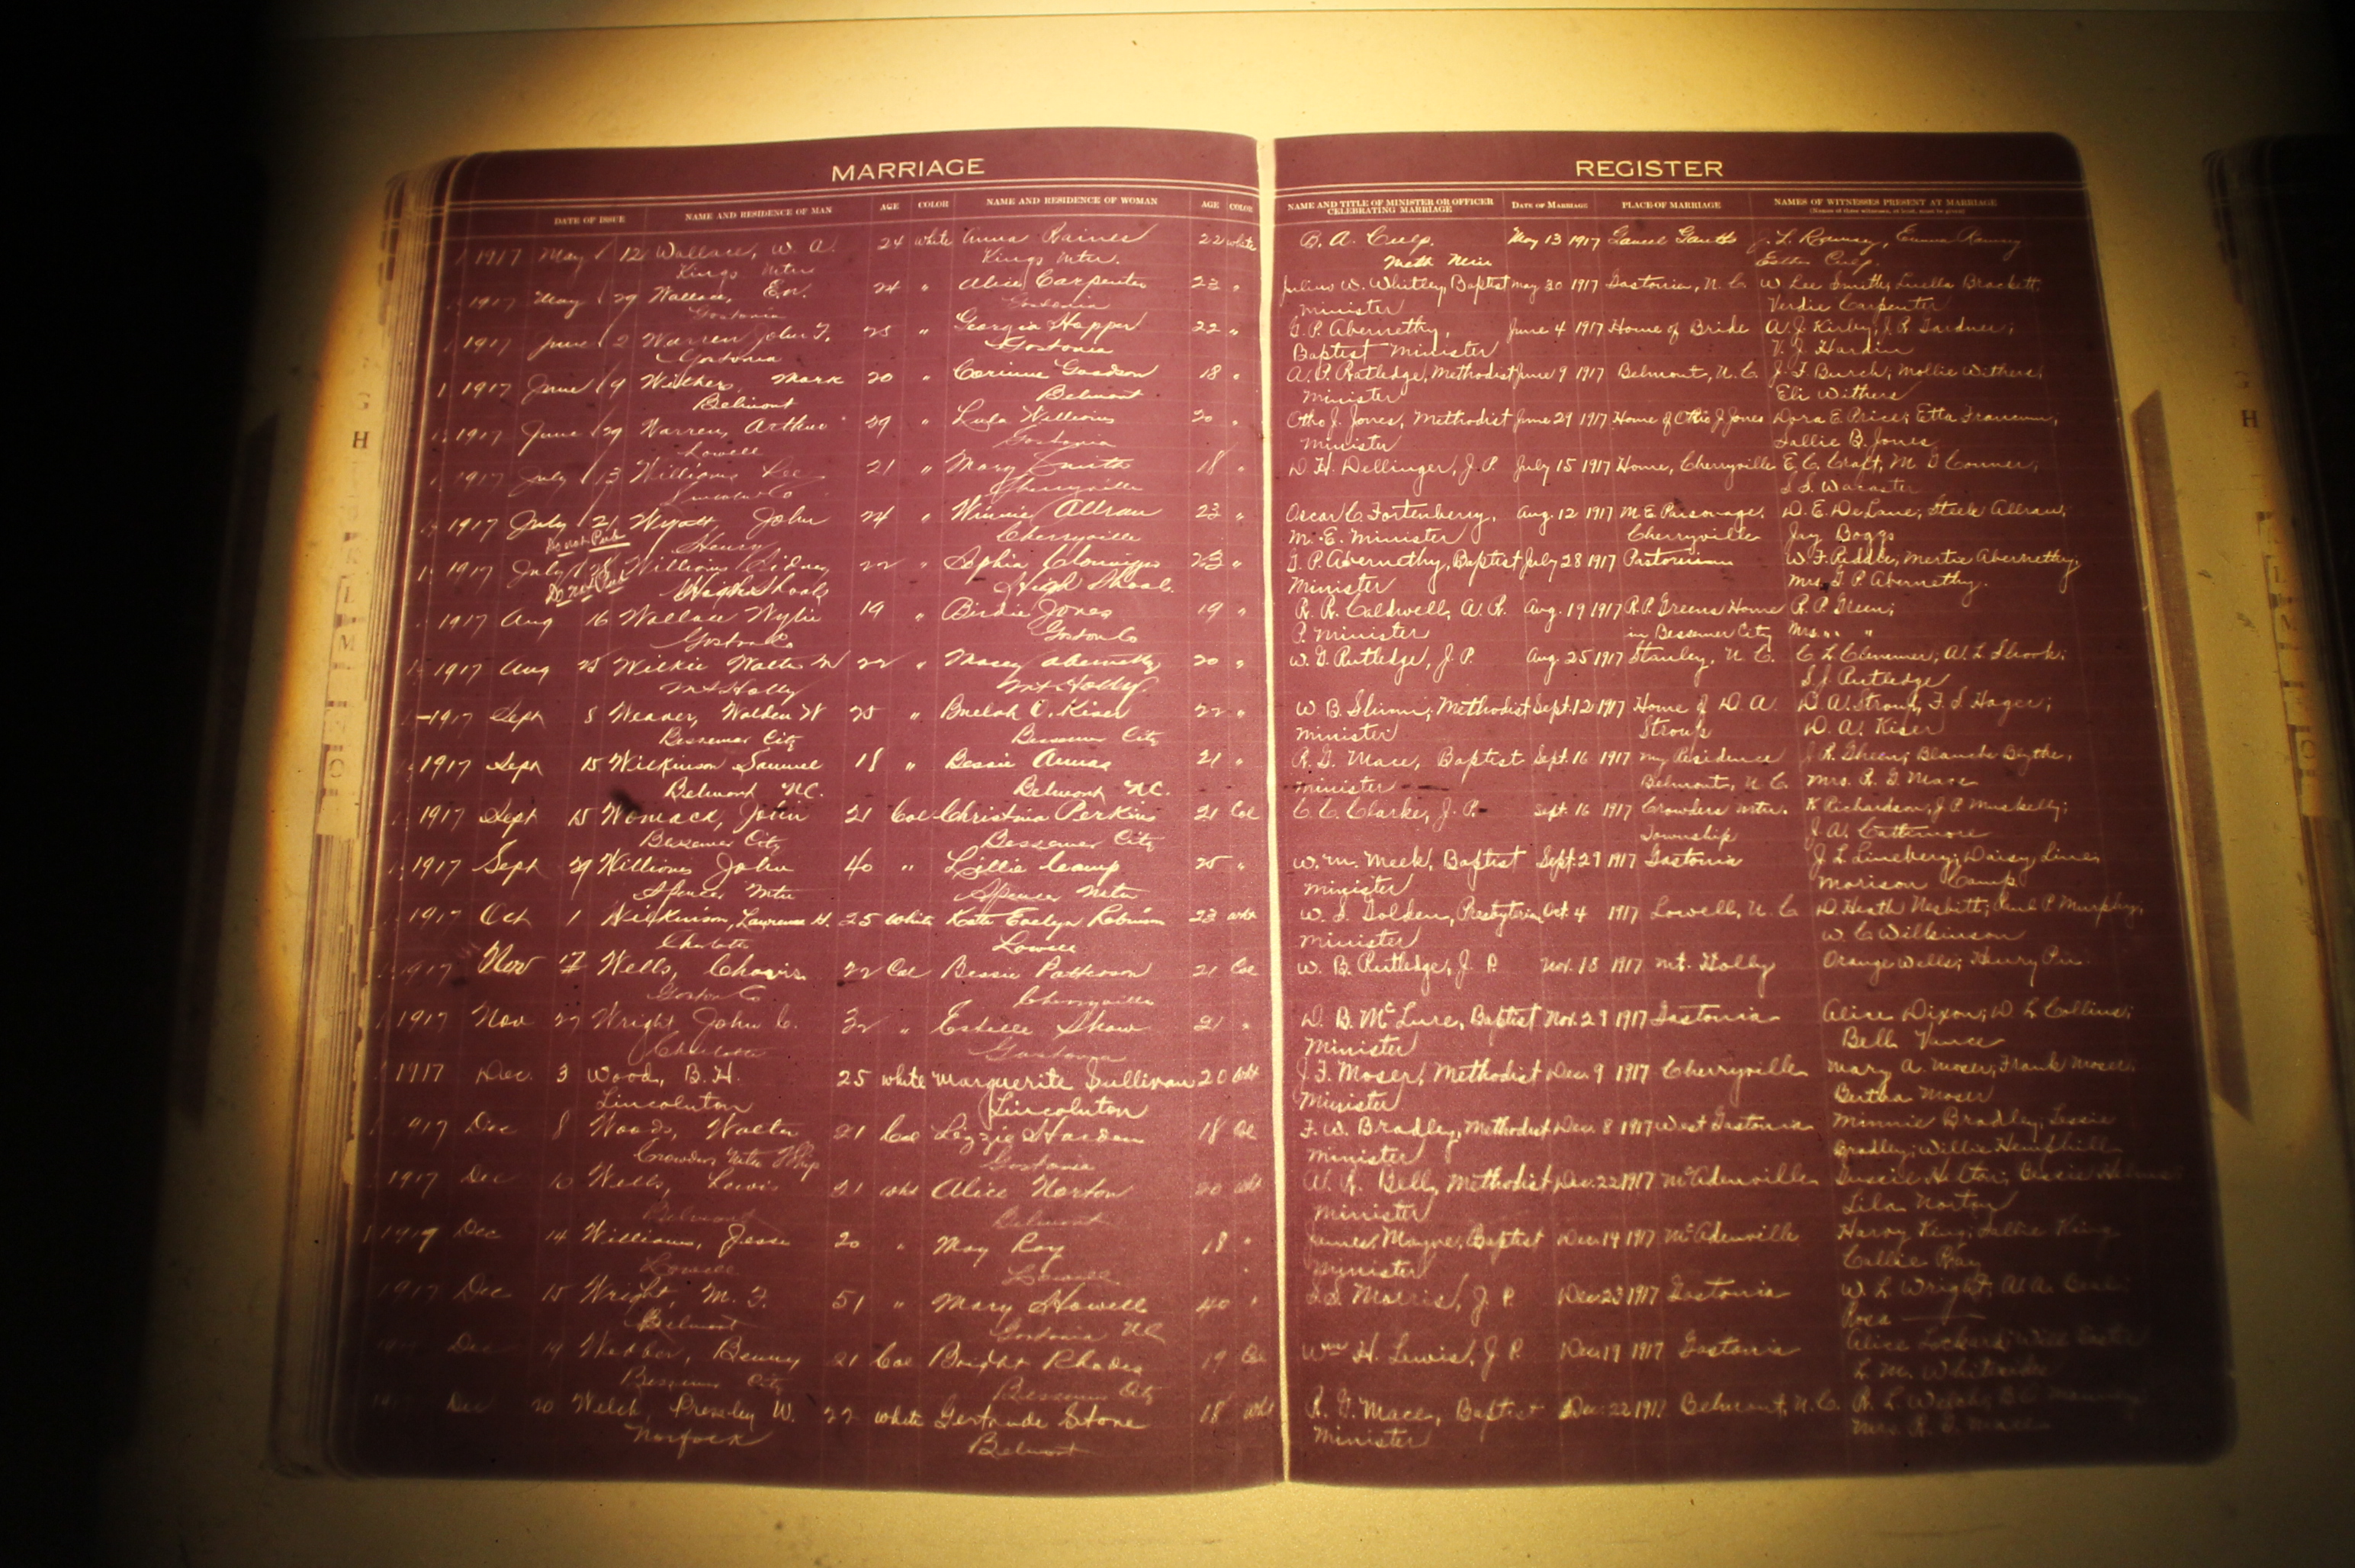 MARRIAGE REGISTER
DATE OF ISSUE NAME AND RESIDENCE OF MAN AGE COLOR NAME AND RESIDENCE OF WOMAN AGE COLOR NAME AND TITLE OF MINISTER OR OFFICER DATE OF MARRIAGE PLACE OF MARRIAGE NAMES OF WITNESSES PRESENT AT MARRIAGE
CELEBRATING MARRIAGE (Names of three witnesses, at least, must be given)
1917 May 12 Wallace, W. A. 24 white Anna Raines 22 white B. A. Culp. May 13 1917 J. L. Ramsey, Emma Ramsey
Kings Mtn Kings Mtn. Meth Min Esther Culp
1917 May 29 Wallace, E.W. 24 " Alice Carpenter 23 " Julius W. Whitley, Baptist May 30 1917 Gastonia, N. C. W Lee Smith; Luella Brackett;
Gastonia Gastonia Minister Verdie Carpenter
1917 June 2 Warren John T. 25 " Georgia Happer 22 " G. P. Abernethy, June 4 1917 Home of Bride A. J. Kirby, J. R. Gardner;
Gastonia Gastonia Baptist Minister V. J. Hardin
1917 June 9 Withers, Mark 20 " Corinne 18 " A. P. Ratledge, Methodist June 9 1917 Belmont, N. C. J. F. Burch; Mollie Withers;
Belmont Belmont Minister Eli Withers
1917 June 29 Warren, Arthur 29 " Lula Williams 20 " Otho J. Jones, Methodist June 29 1917 Home of Otho J Jones Dora E. Price; Etta
Lowell Gastonia Minister Sallie B. Jones
1917 July 13 Williams Lee 21 " Mary Smith 18 " D. H. Dellinger, J. P. July 15 1917 Home, Cherryville E. C. Craft, M. G Conner;
Lincoln Co Cherryville S. S.
1917 July 21 Wyatt, John 24 " Winnie Allran 23 " Oscar C. Fortenberry, Aug. 12 1917 M. E. Parsonage, D. E. DeLane; Steele Allran;
Do not Pub Henry Cherryville M. E. Minister Cherryville Jay Boggs
1917 July 28 Williams Sidney 22 " Sophia Cloninger 23 " G. P. Abernethy, Baptist July 28 1917 Pastorium W. F. Riddle, Mertie Abernethy;
Do not Pub High Shoals High Shoals Minister Mrs. G. P. Abernethy.
1917 Aug 16 Wallace Wylie 19 " Birdie Jones 19 " R. R. Caldwell, A. R. Aug. 19 1917 R. P. Greens Home R. P. Green;
Gaston Co Gaston Co P. Minister in Bessemer City Mrs. " "
1917 Aug 25 Wilkie Walter W 22 " Macey Abernethy 20 " W. G. Rutledge, J. P. Aug 25 1917 Stanley, N. C. C. L. Clemmer; A. L. Shook;
Mt Holly Mt Holly S. J. Rutledge
1917 Sept 8 Weaver, Walden W 25 " Buelah O. Kiser 22 " W. B. Shinn; Methodist Sept. 12 1917 Home of D. A. D. A. Stroup, F. S. Hager;
Bessemer City Bessemer City Minister Stroup D. A. Kiser
1917 Sept 15 Wilkinson Samuel 18 " Bessie 21 " R. G. Mace, Baptist Sept. 16 1917 My Residence J. R. Gheen; Blanche Blythe,
Belmont NC. Belmont NC. Minister Belmont, N. C. Mrs. R. G. Mace
1917 Sept 15 Womack, John 21 Col Christina Perkins 21 Col C. C. Clarke, J. P. Sept. 16 1917 Crowders Mtn. K Richardson, J. P.
Bessemer City Bessemer City Township J. A.
1917 Sept 29 Williams John 40 " Lillie Camp 25 " W. M. Meek, Baptist Sept. 29 1917 Gastonia J. L. Lineberg; Daisy Line;
Spencer Mtn Spencer Mtn Minister Morison Camp
1917 Oct 1 Wilkinson, Lawrence H. 25 white Kate Evelyn Robinson 23 wht W. S. Golden, Presbyterian Oct. 4 1917 Lowell, N. C. D. Heath Nesbitt; Paul P Murphy;
Charlotte Lowell Minister W. C. Wilkinson
1917 Nov 17 Wells, 22 Col Bessie Patterson 21 Col W. B. Rutledge, J. P. Nov. 18 1917 Mt. Holly Orange Wells; Henry
Gaston Co Cherryville
1917 Nov 27 Wright John C. 32 " Estelle Shaw 21 " D. B. McLure, Baptist Nov. 29 1917 Gastonia Alice Dixon; D L Collins;
Charlotte Gastonia Minister Bell Vance
1917 Dec. 3 Wood, B. H. 25 white Marguerite Sullivan 20 wht J. F. Moser, Methodist Dec. 9 1917 Cherryville Mary A. Moser, Frank Moser,
Lincolnton Lincolnton Minister Bertha Moser
1917 Dec 8 Woods, Walter 21 Col Lizzie Harden 18 Col F. W. Bradley, Methodist Dec. 8 1917 West Gastonia Minnie Bradley; Jessie
Crowders Mtn Tship Gastonia Minister Bradley; Willie Hemphill
1917 Dec 10 Wells, Lewis 21 wht Alice Norton 20 wht A. R. Bell, Methodist Dec. 22 1917 McAdenville
Belmont Belmont Minister Lila Norton
1917 Dec 14 Williams, Jesse 20 " May Ray 18 " James Mayne, Baptist Dec 14 1917 McAdenville Harvy King; Sallie King
Lowell Lowell Minister Callie Ray
1917 Dec 15 Wright, M. F. 51 " Mary Howell 40 " S. S. Morris, J. P. Dec 23 1917 Gastonia W. L. Wright;
Belmont Gastonia NC Rosa
Dec 19 Webber, Benny 21 Col Bright Rhodes 19 Col Wm H. Lewis, J. P. Dec 19 1917 Gastonia Alice Lockard; Will
Bessemer City Bessemer City L. M. Whiteside
Dec 20 Welch, Pressley W. 22 white Gertrude Stone 18 wht R. G. Mace, Baptist Dec. 22 1917 Belmont, N. C. R. L. Welch;
Norfolk Belmont Minister Mrs. R. G. Mace